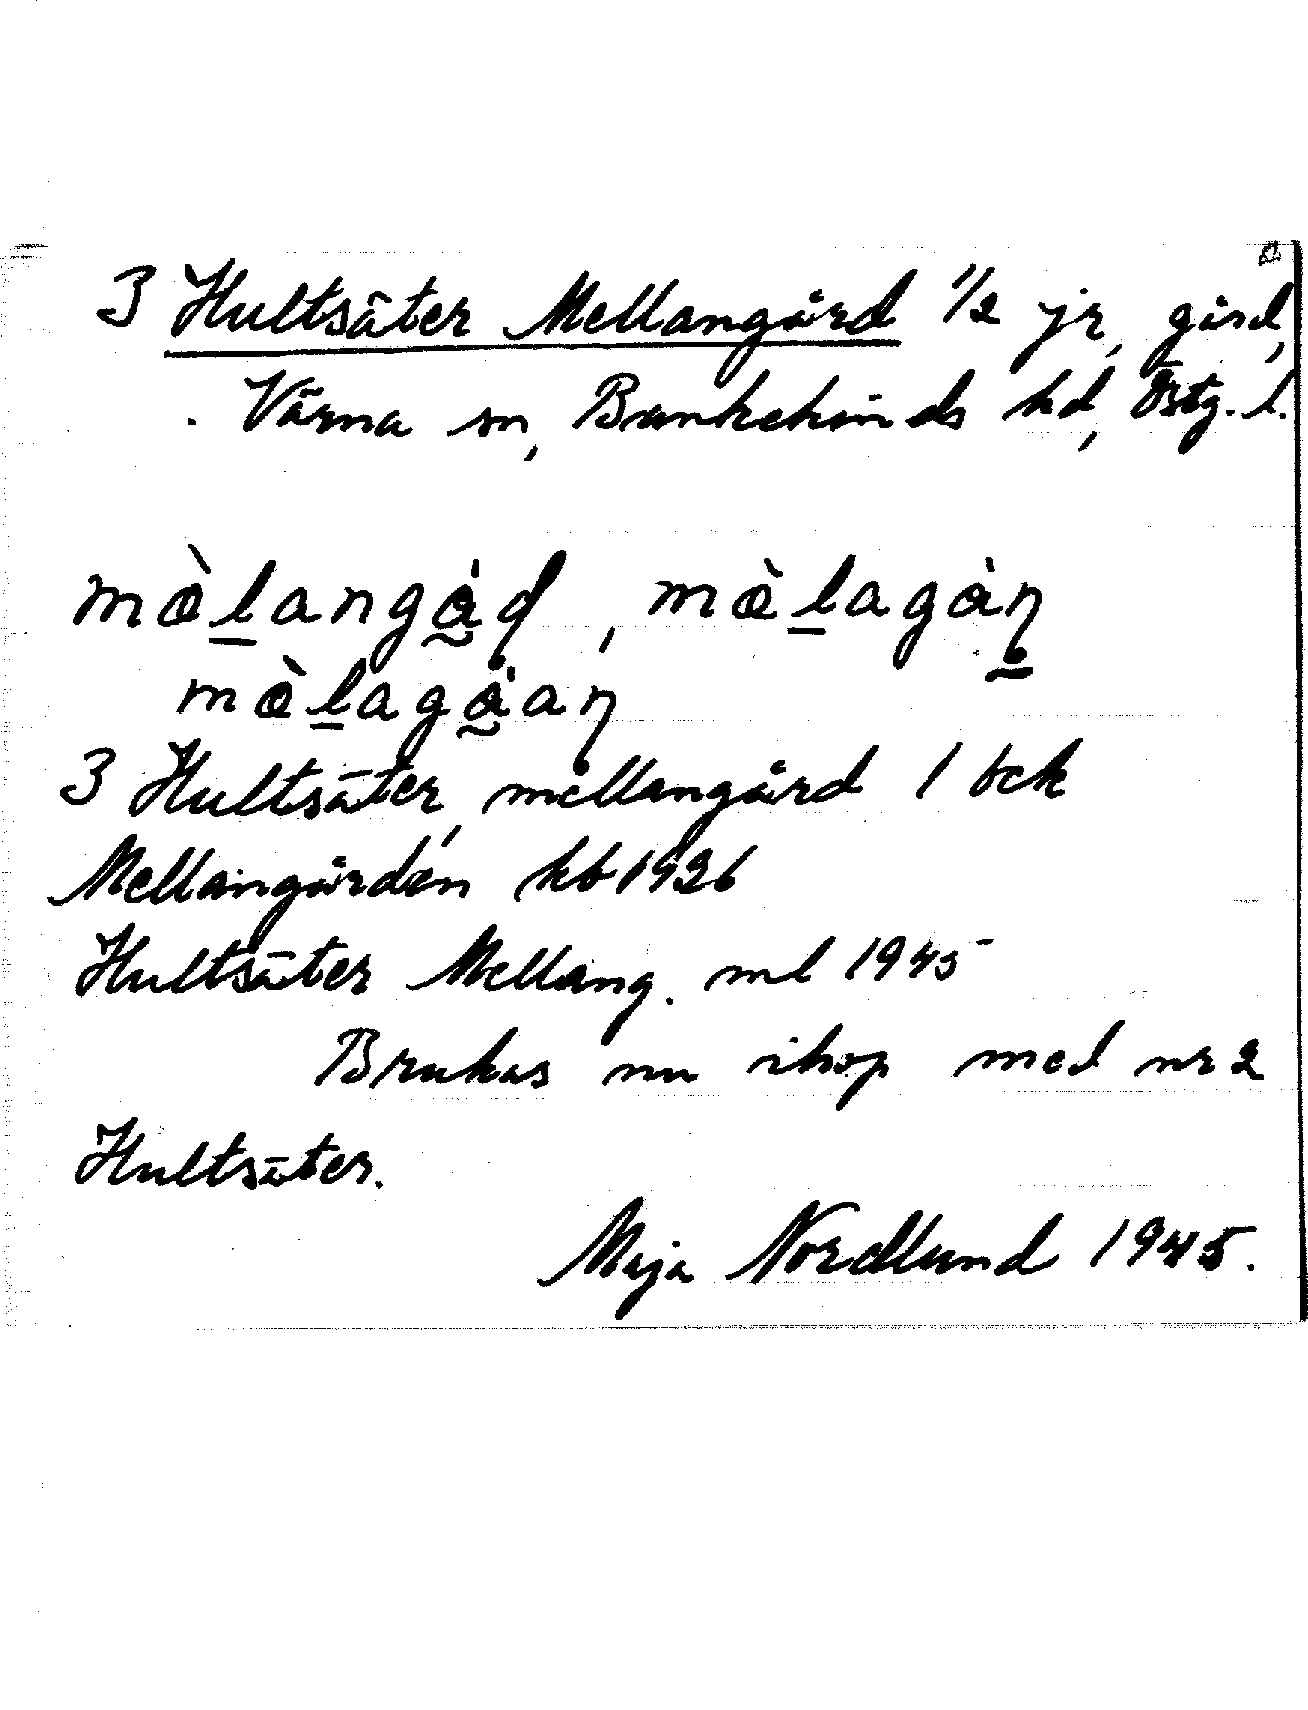 3 Hultsäter Mellangård 1/2 jr, gård,
Värna sn, Bankekinds hd, Östg. l.
mæ̀langåd, mæ̀lagàn
mæ̀lagåan
3 Hultsäter, mellangård 1 bek
Mellangården kb 1926
Hultsäter Mellang. ml 1945
Brukas nu ihop med nr 2
Hultsäter.
Maja Nordlund 1945.